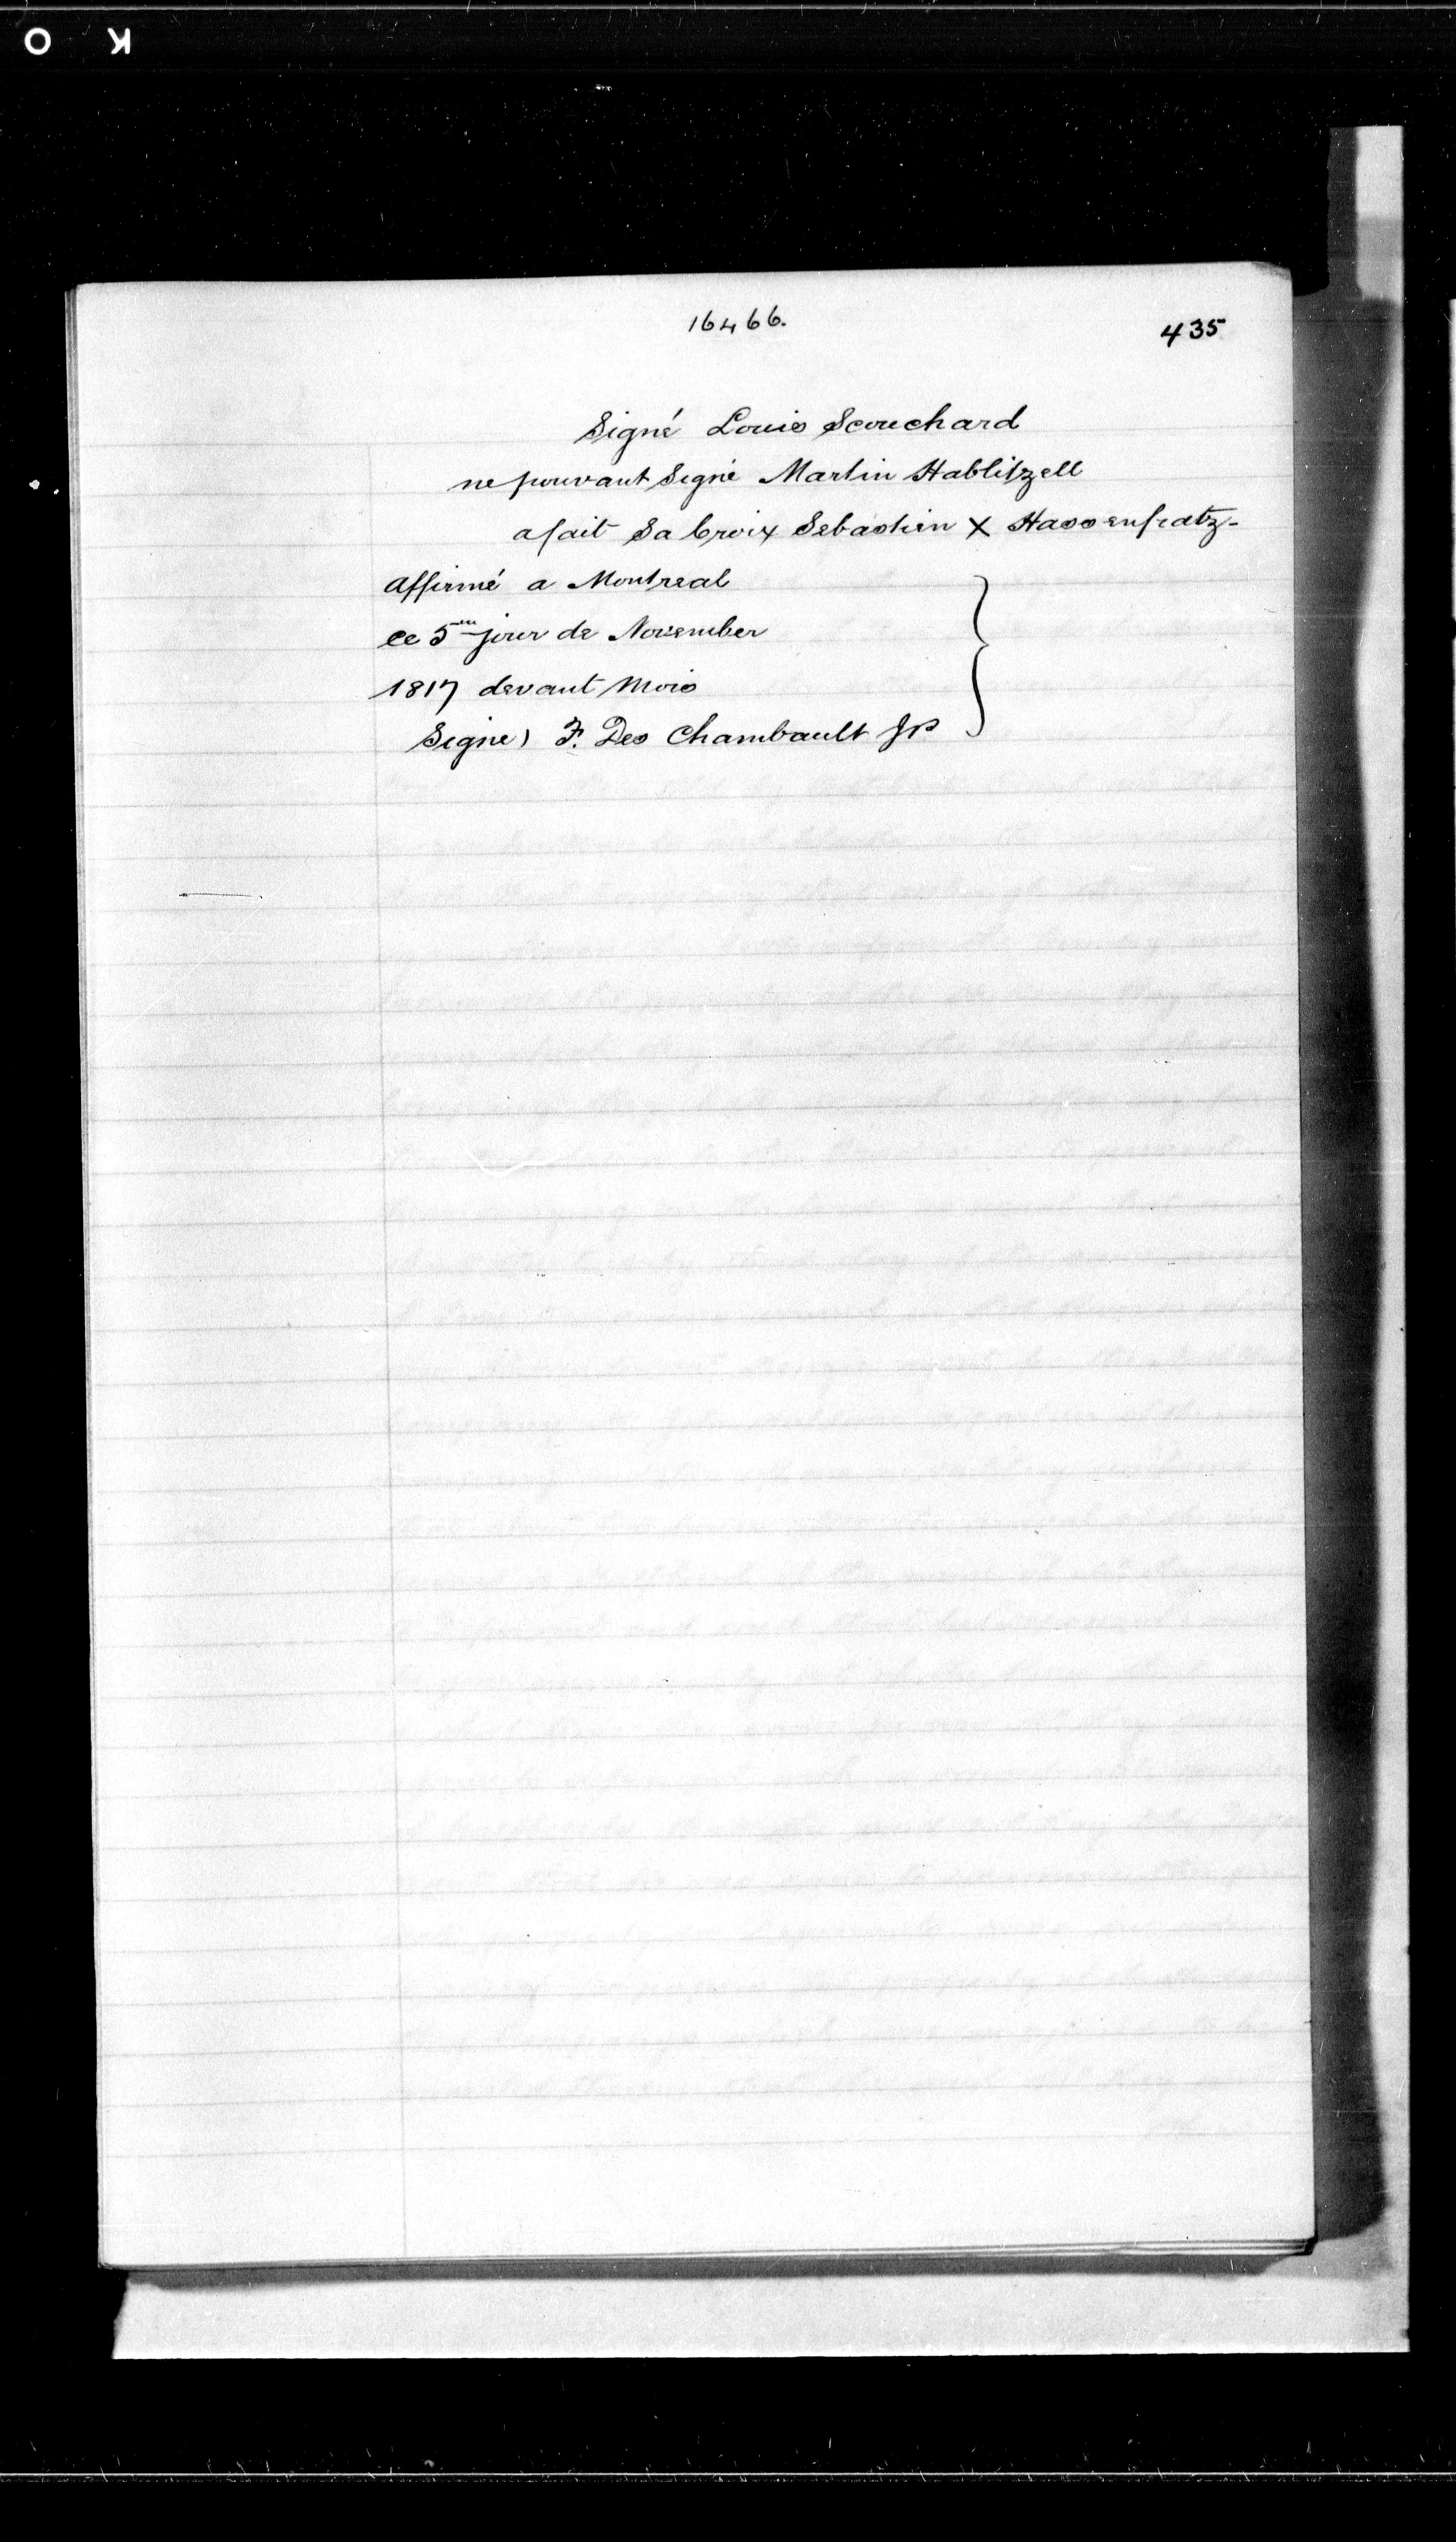 O K
16466.
435
Signé Louis Scouchard
ne pouvant Signé Martin Hablitzell
a fait Sa Croix Sebastien X Hassenfratz-
Affirmé a Montreal
ce 5me jour de November
1817 devant Mois
Signe) F. Des Chambault JP